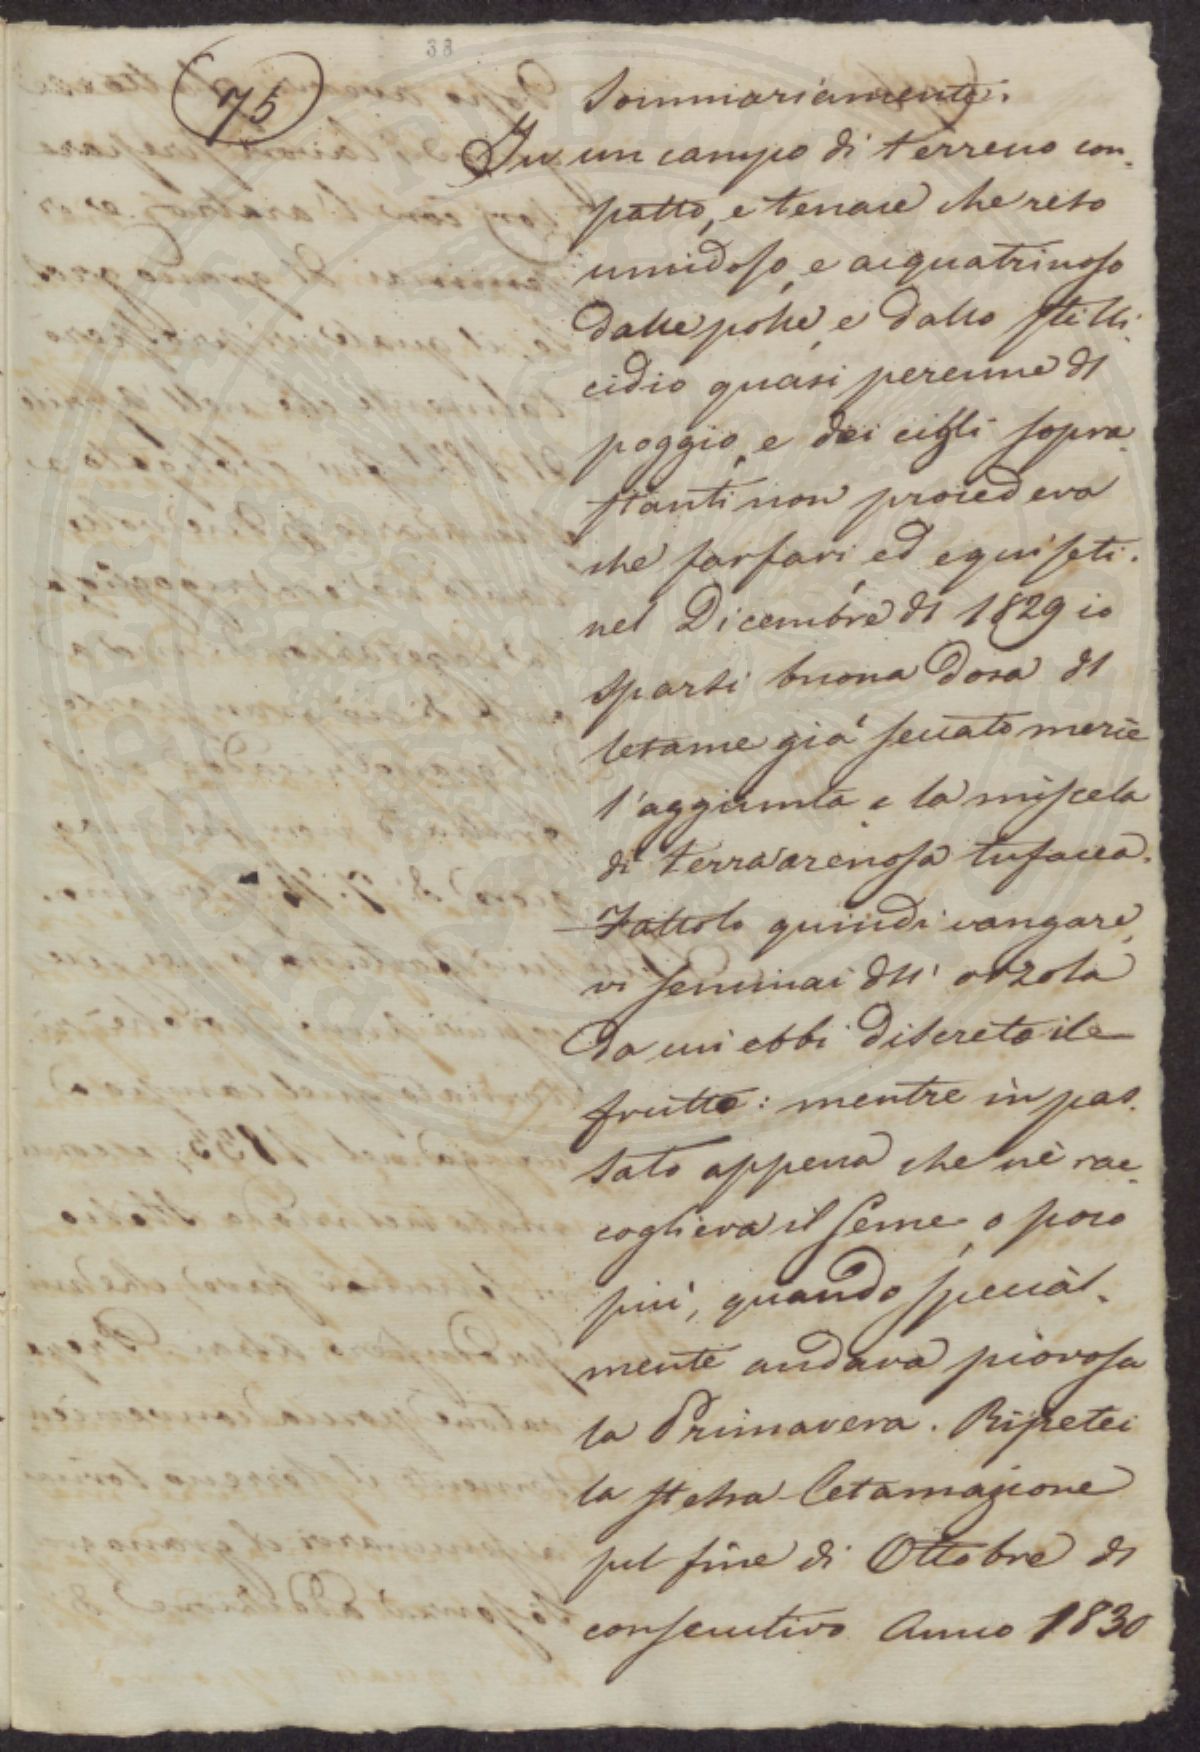 38
75
Sommariamente.
In un campo di terreno con-
patto, e tenace che reso
umidoso, e acquatrinoso
dalle polle, e dallo stilli-
cidio quasi perenne di
poggio, e dei cigli sopra-
stanti non procedeva
che farfari ed equiseti.
nel Dicembre di 1829 io
sparsi buona dosa di
letame già seccato mercè
l'aggiunta e la miscela
di terra arenosa tufacea.
Fattolo quindi vangare,
vi seminai dell' orzola
da cui ebbi discreto il
frutto: mentre in pas-
sato appena che nè rac-
coglieva il seme, o poco
più, quando special-
mente andava piovosa
la Primavera. Ripetei
la stessa letamazione
sul fine di Ottobre di
consecutivo Anno 1830